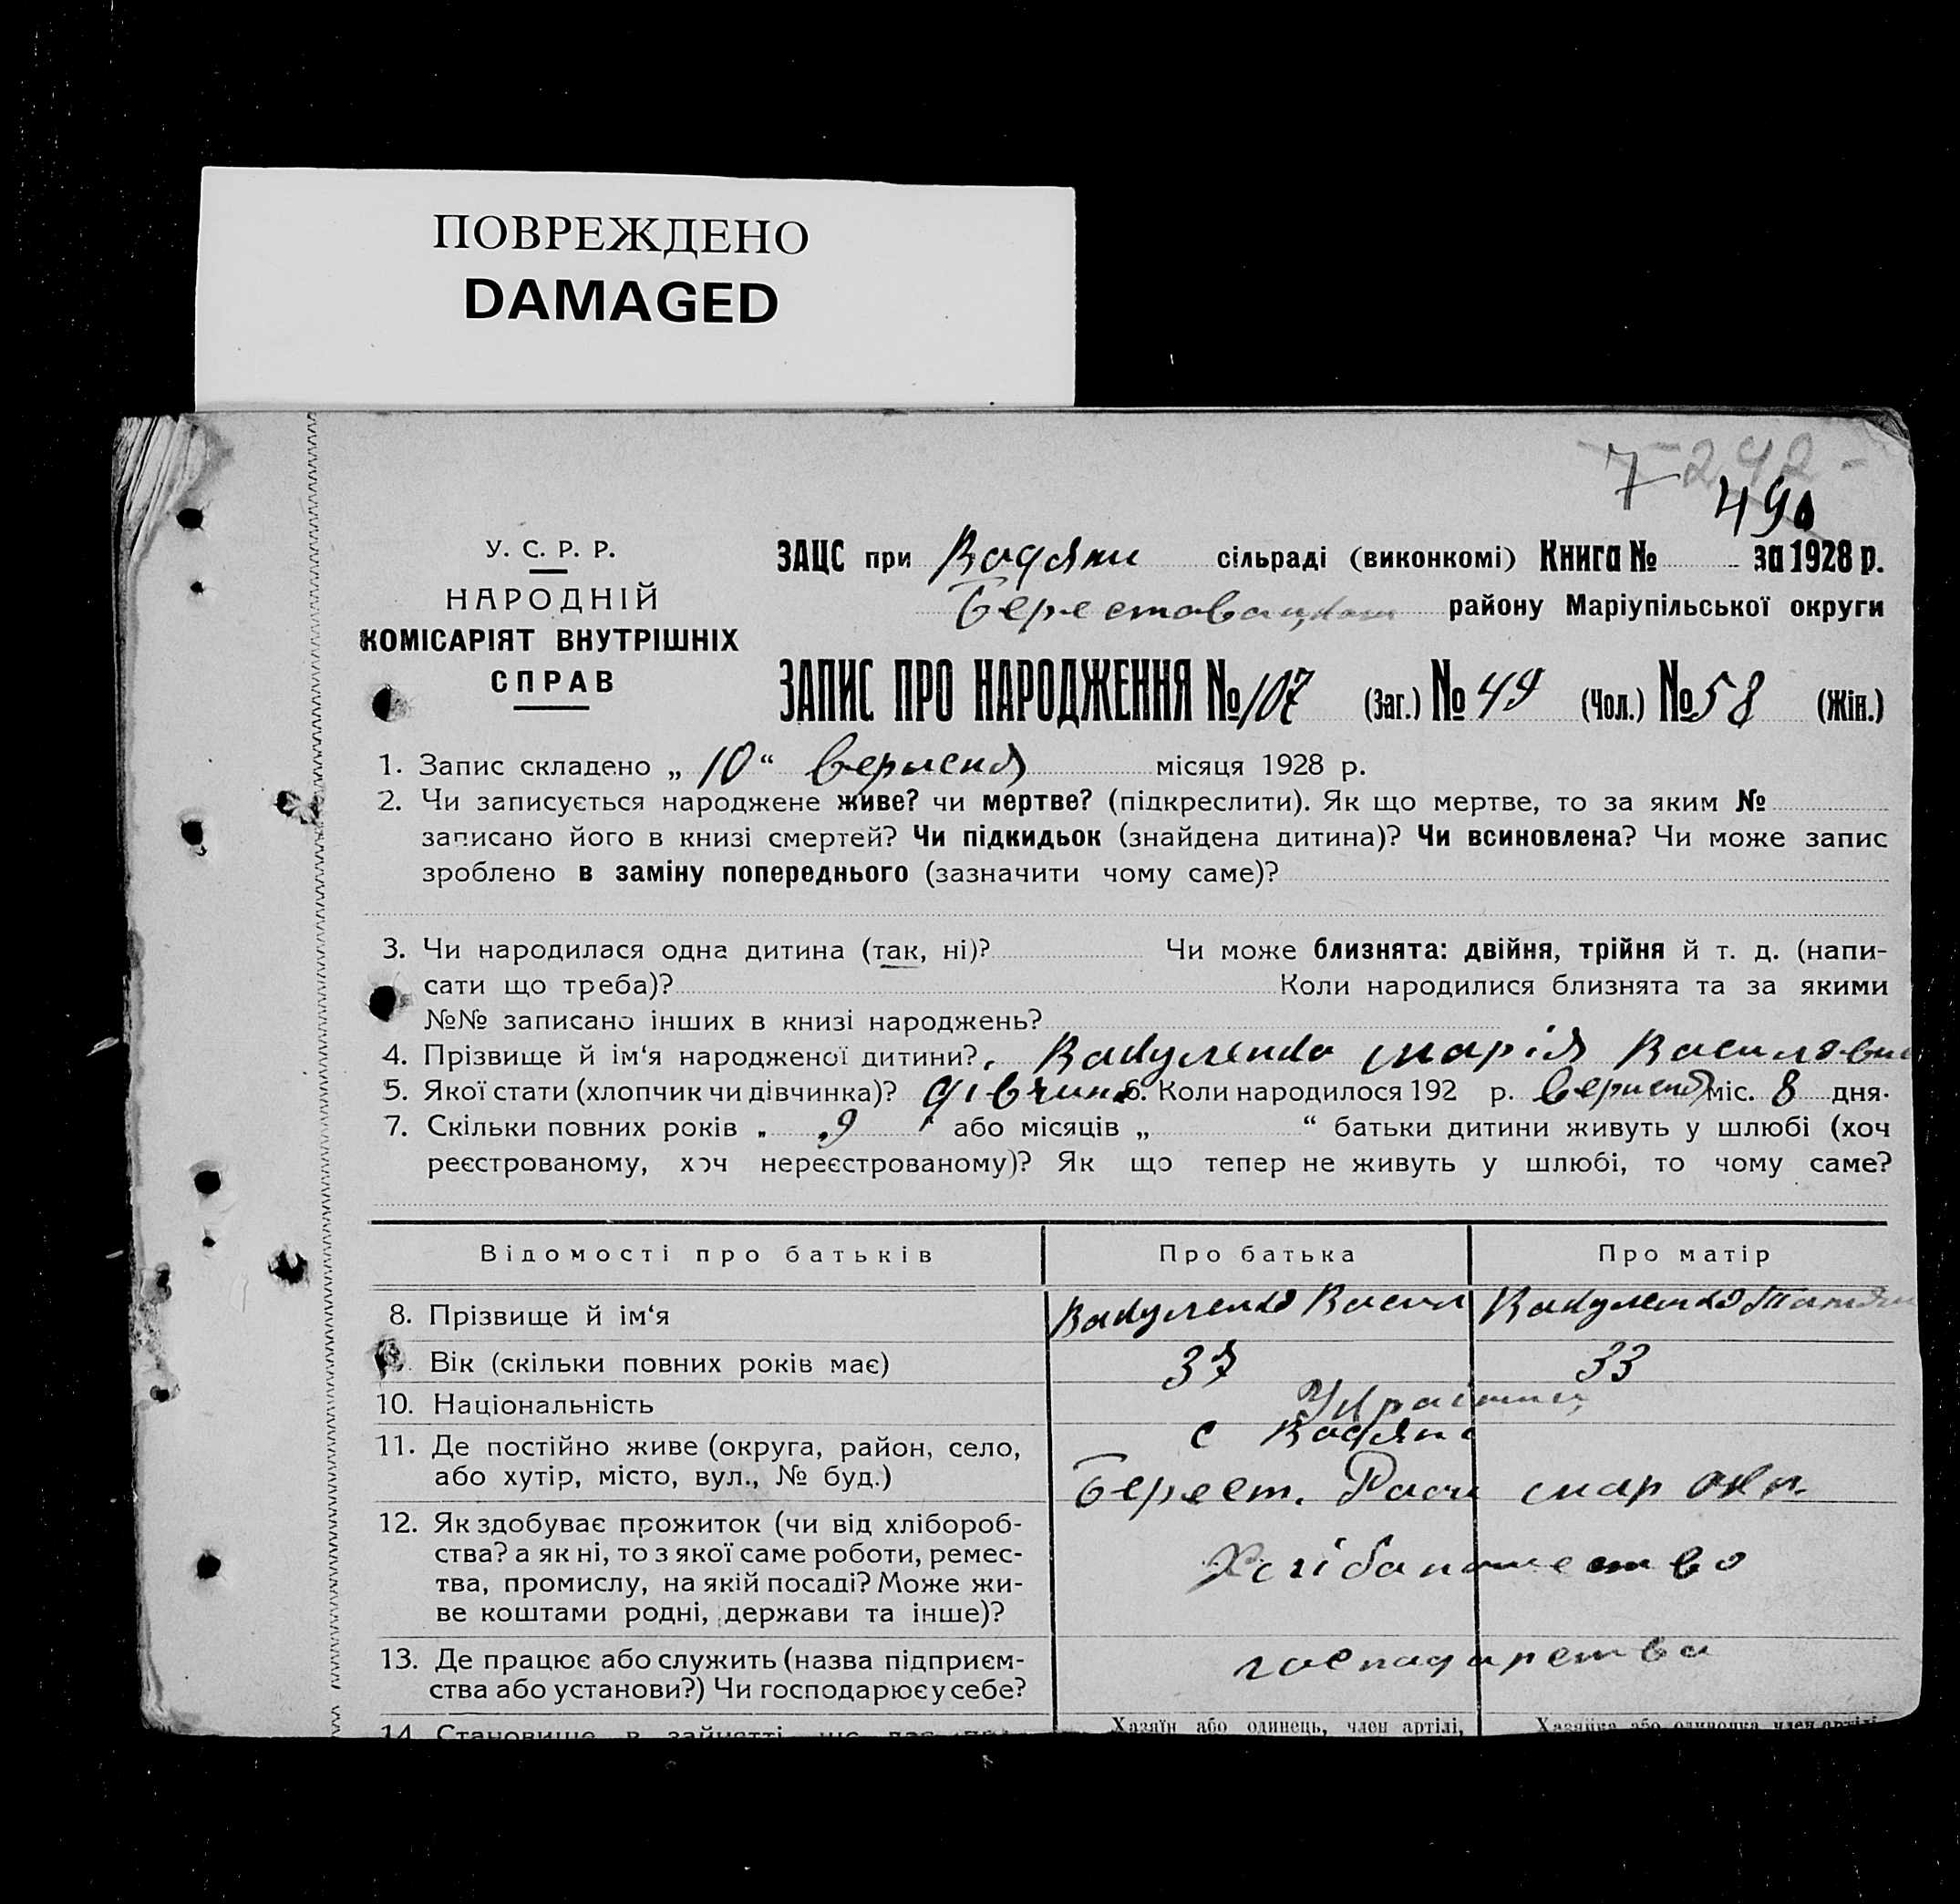 ПОВРЕЖДЕНО
DAMAGED
7 242 -
490
У. С. Р. Р.
НАРОДНІЙ
КОМІСАРІЯТ ВНУТРІШНІХ
СПРАВ
ЗАЦС при Водяни сільраді (виконкомі) Книга № за 1928 р.
району Маріупільської округи
ЗАПИС ПРО НАРОДЖЕННЯ № 107 (Заг.) № 49 (Чол.) № 58 (Жін.)
1. Запис складено „ 10 “ вересня місяця 1928 р.
2. Чи записується народжене живе? чи мертве? (підкреслити). Як що мертве, то за яким №
записано його в книзі смертей? Чи підкидьок (знайдена дитина)? Чи всиновлена? Чи може запис
зроблено в заміну попереднього (зазначити чому саме)?
3. Чи народилася одна дитина (так, ні)? Чи може близнята: двійня, трійня й т. д. (напи-
сати що треба)? Коли народилися близнята та за якими
№№ записано інших в книзі народжень?
4. Прізвище й ім‘я народженої дитини? Вакуленко Марія
5. Якої стати (хлопчик чи дівчинка)? дівчина 6. Коли народилося 192 р. вересня міс. 8 дня.
7. Скільки повних років „ 9 “ або місяців „ “ батьки дитини живуть у шлюбі (хоч
реєстрованому, хоч нереєстрованому)? Як що тепер не живуть у шлюбі, то чому саме?
Відомості про батьків Про батька Про матір
8. Прізвище й ім‘я Вакуленко Васил Вакуленко
Вік (скільки повних років має) 37 33
10. Національність
11. Де постійно живе (округа, район, село,
або хутір, місто, вул., № буд.)
с Водяні
Берест. Раон мар окр.
12. Як здобуває прожиток (чи від хлібороб-
ства? а як ні, то з якої саме роботи, ремес-
тва, промислу, на якій посаді? Може жи-
ве коштами родні, держави та інше)?
13. Де працює або служить (назва підприєм-
ства або установи?) Чи господарює у себе?
господарства
14. Становище в занятті, що дає
Хазяїн або одинець, член артілі, Хазяйка або одиночка член артілі